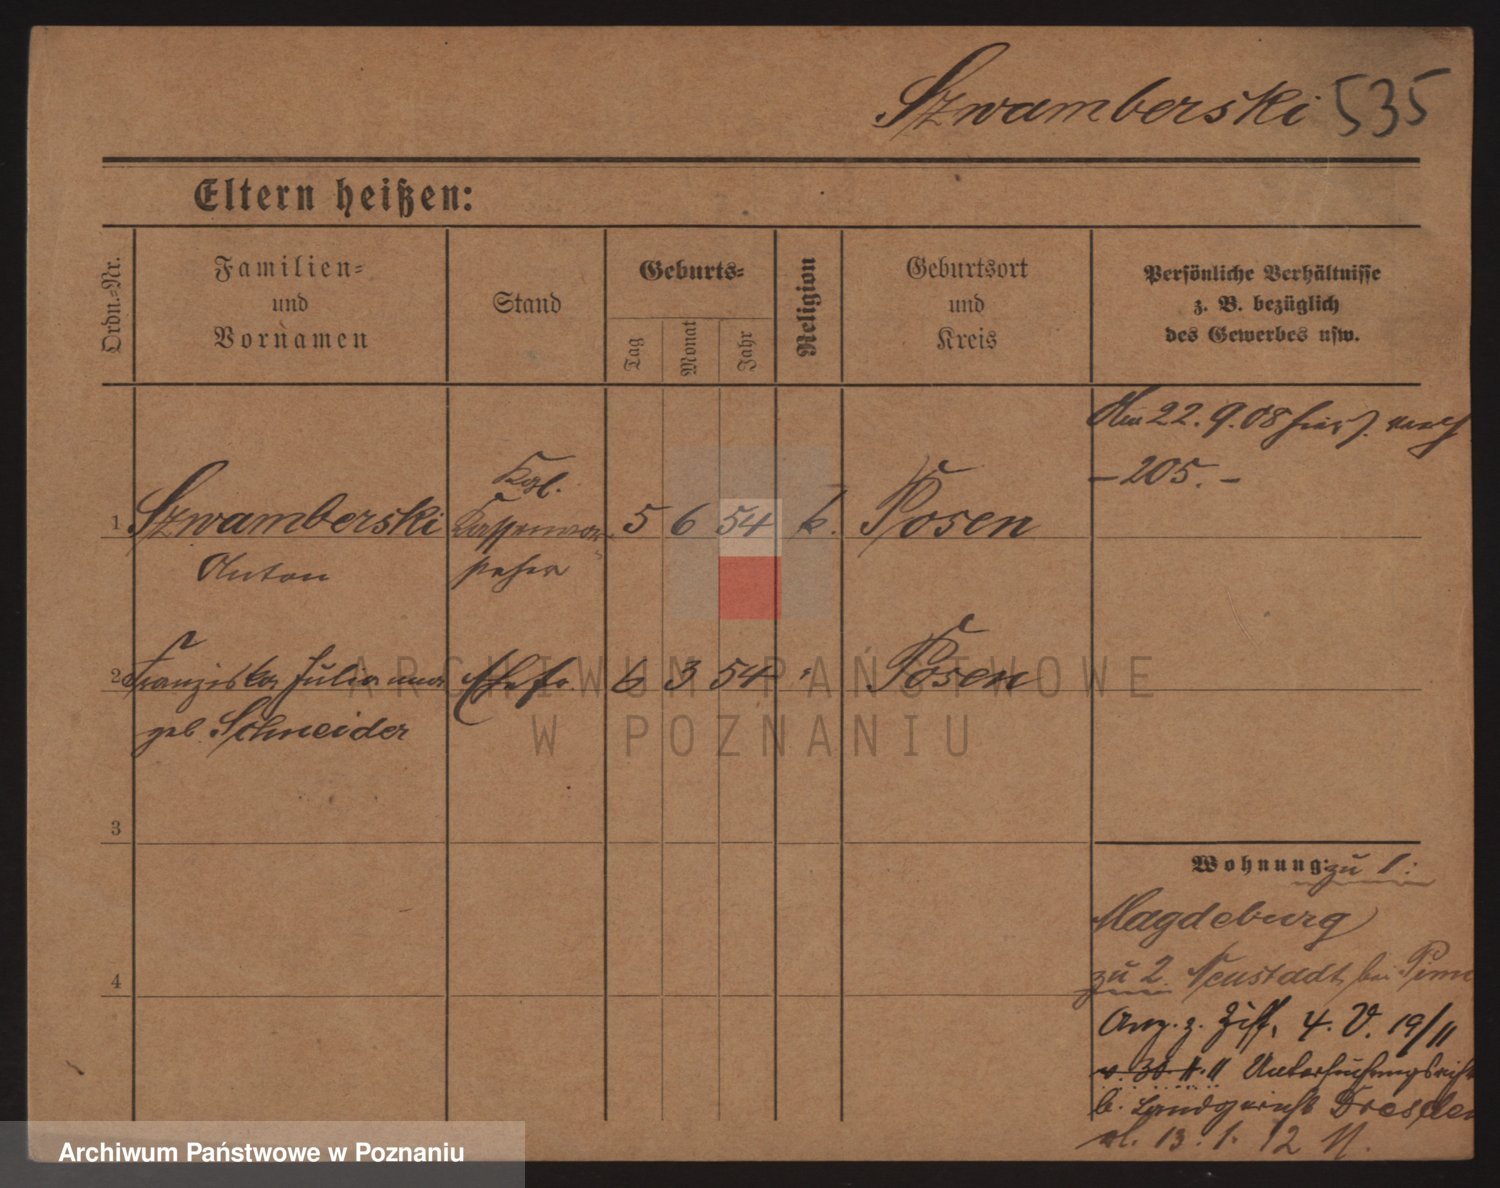 Szwamberski 535
Eltern heißen:
Ordn.-Nr.
Familien-
und
Vornamen
Stand
Geburts-
Tag
Monat
Jahr
Religion
Geburtsort
und
Kreis
Persönliche Verhältnisse
z. B. bezüglich
des Gewerbes usw.
Am 22. 9. 08
– 205. –
Kgl.
1 Szwamberski 5 6 54 k. Posen
Anton
2 Franziska Julianna Ehefr. 6 3 54 " Posen
geb. Schneider
3
Wohnung: zu 1:
Magdeburg
4
zu 2. Neustadt, bei Pinne
Anz. z. Ziff. 4. V. 19/11
v. 30. 11. 11 Untersuchungsricht
b. Landgericht Dresden
13. 1. 12
ARCHIWUM PAŃSTWOWE
W POZNANIU
Archiwum Państwowe w Poznaniu